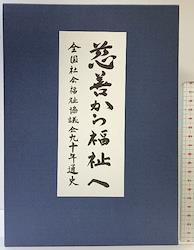 慈善から福祉へ
全国社会福祉協議会九十年通史